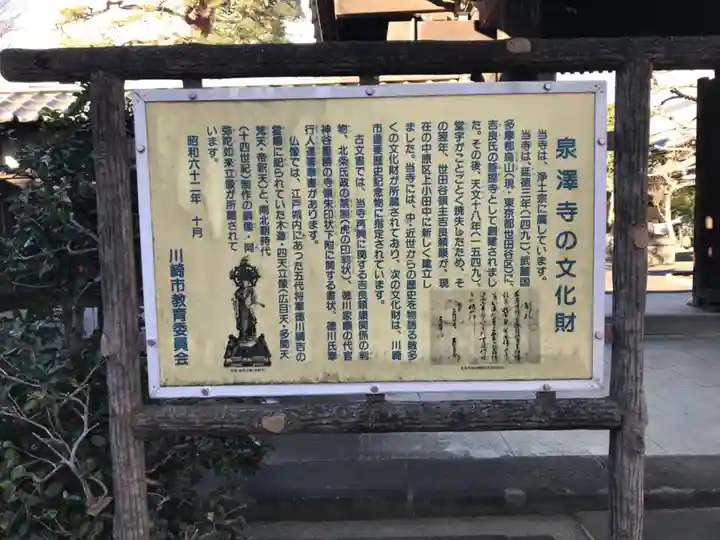 泉澤寺の文化財
当寺は、浄土宗に属しています。
当寺は、延徳三年(一四九一)、武蔵国
多摩郡烏山(現・東京都世田谷区)に、
吉良氏の菩提寺として創建されまし
た。その後、天文十八年(一五四九)、
堂宇がことごとく焼失したため、そ
の翌年、世田谷領主吉良頼康が、現
在の中原区上小田中に新しく建立し
ました。当寺には、中・近世からの歴史を物語る数多
くの文化財が所蔵されており、次の文化財は、川崎
市重要歴史記念物に指定されています。
古文書では、当寺再興に関する吉良頼康関係の判
物、北条氏政の禁制(虎の印判状)、徳川家康の代官
神谷重勝の寺領朱印状下附に関する書状、徳川氏奉
行人連署証書があります。
仏像では、江戸城内にあった五代将軍徳川綱吉の
霊廟に祀られていた木造・四天立像(広目天・多聞天
梵天・帝釈天)と、南北朝時代
(十四世紀)制作の銅像・阿
弥陀如来立像が所蔵されて
います。
昭和六十二年 十月
川崎市教育委員会